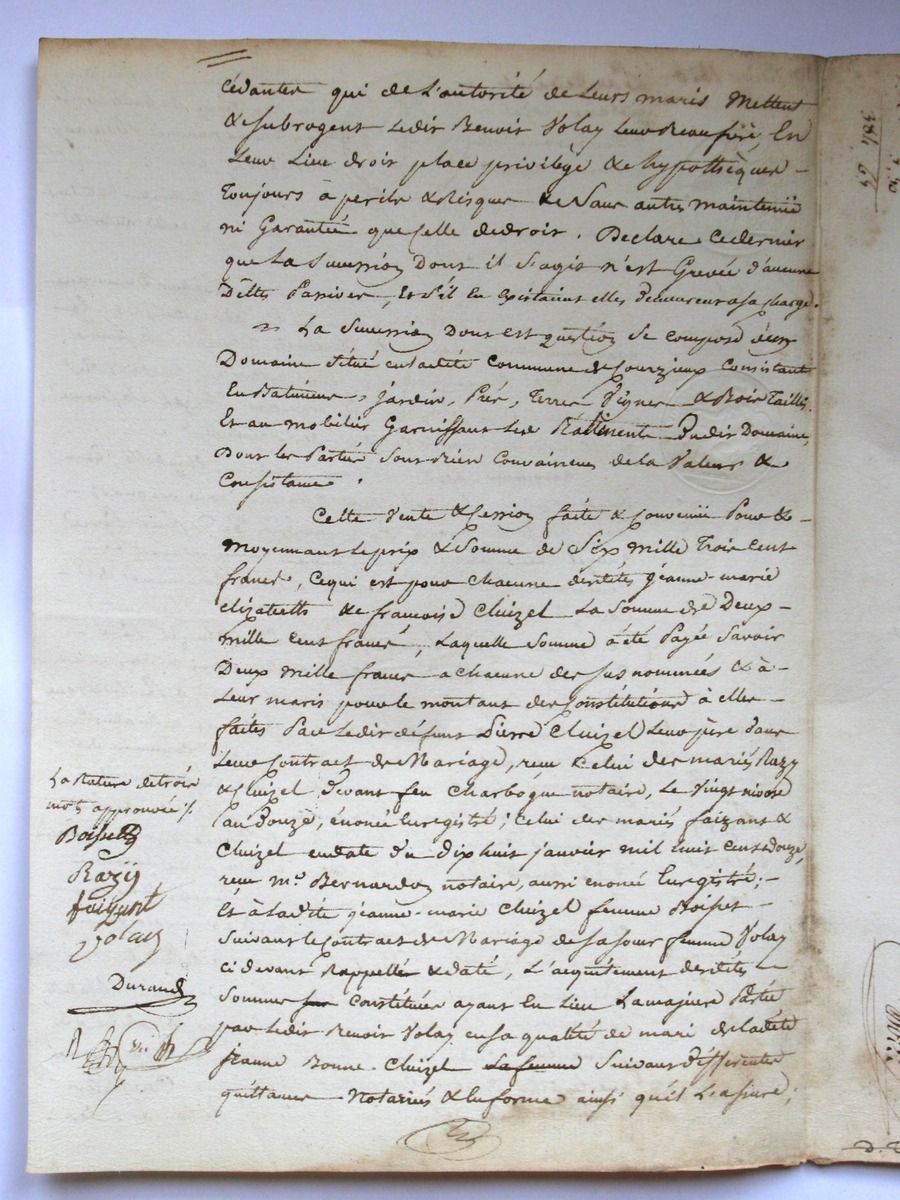 Cédantes qui de L'autorité de Leurs maris Mettent
& subrogent Ledit Benoit Volay Leur Beau frère, En
Leur Lieu droit place privilége & hypothèques
Toujours à périls & Risques & Sans autre maintenüe
ni Garantié que Celle de droit. Declare Ce dernier
que La Succession Dont il S'agit n'est Grevée d'aucune
Dêttes Passives, Et S'il En Existaint elles Demeureront a sa charge.
La Succession Dont est question Se Compose d'un
Domaine Situé en ladité Commune de Courzieux Consistant
En Batiments, jardin, Prés, Terres Vignes & Bois Taillis,
Et au mobilier Garnissant Les Batiments Dudit Domaine,
Dont les Parties Sont bien Convaincues de la Valeur &
Consistance.
Cette Vente & Cession faite & Convenüe Pour &
Moyennant Le prix & Somme de Six Mille Trois Cent
francs, Ce qui est pour Chacune desdites Jeanne-marie
Elizabeth & françoise Cluizel La Somme de Deux
mille Cent francs, Laquelle Somme a été Payée Savoir
Deux mille francs a Chacune des Sus nommées & à
Leur maris pour le montant des Constitutions à elles
faites Par Ledit défunt Pierre Cluizel Leur père Dans
Leurs Contract de Mariage, recu Celui des mariés Razy
& Cluizel Devant feu Charbogne notaire, Le Vingt nivose
an Douze, énoncé Enregistré; Celui des mariés faizant &
Cluizel en date du dix huit janvier mil huit Cent douze,
recu Me. Bernardon notaire, aussi enoncé Enregistré;
Et à ladité Jeanne-marie Cluizel femme Boisset
Suivant le Contract de Mariage de sa sœur femme Volay
Ci devant Rappellé & daté, L'acquitement desdites
Sommes Constituées ayant En Lieu La majeure Partie
par Ledit Benoit Volay en sa qualité de mari de ladité
Jeanne Bonne Cluizel La femme Suivant Différentes
quittances Notariés & En forme ainsi qu'il L'assure;
La Rature de trois
mots approuvée
Boisset
Razÿ
faizant
Volay
Durand